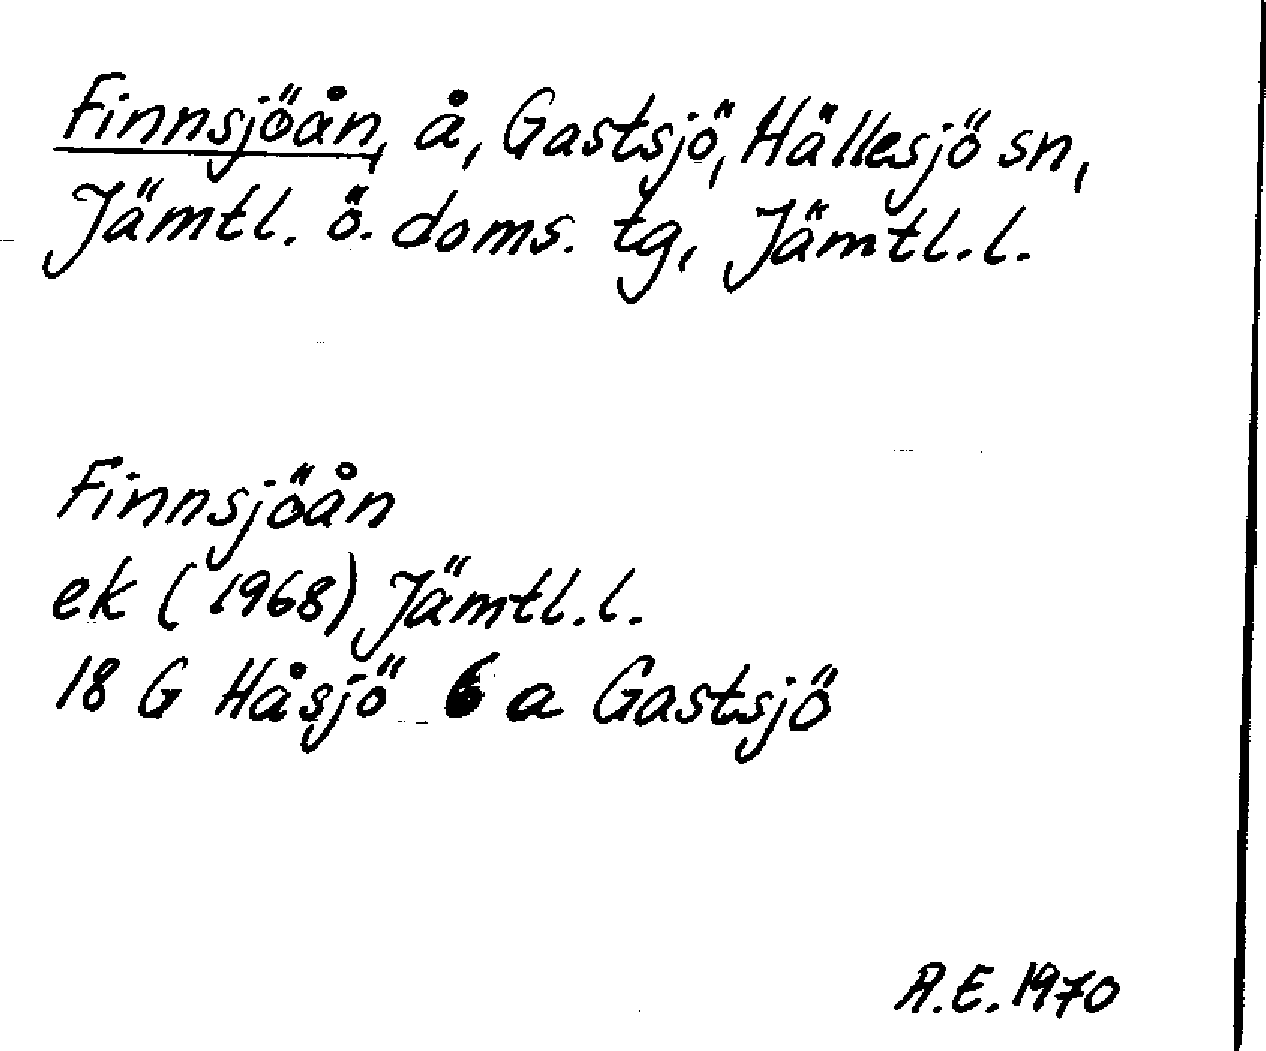 Finnsjöån, å, Gastsjö, Hällesjö sn,
Jämtl. ö. doms. tg, Jämtl. l.
Finnsjöån
ek (1968) Jämtl. l.
18 G Håsjö 6 a Gastsjö
A.E. 1970